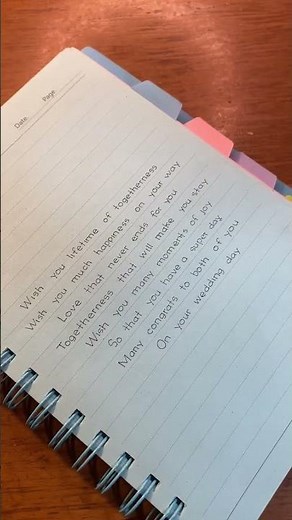 Date
Page
Wish you lifetime of togetherness
Wish you much happiness on your way
Love that never ends for you
Togetherness that will make you stay
Wish you many moments of joy
So that you have a super day
Many congrats to both of you
On your wedding day